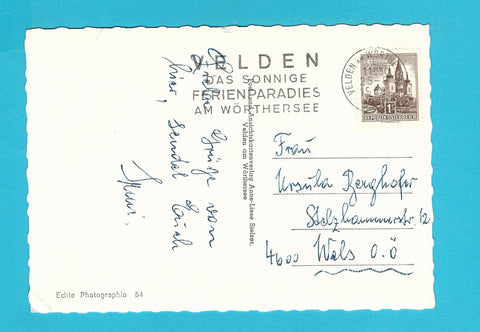 VELDEN
DAS SONNIGE
FERIENPARADIES
AM WÖRTHERSEE
VELDEN AM WÖRTHERSEE
REPUBLIK ÖSTERREICH
Grüße von
hier, sendet Euch
Ansichtskartenverlag Anne-Liese Stelzer,
Velden am Wörthersee
Frau
Ursula Berghofer
Stelzhammerstr. 12
4600 Wels O.Ö
Echte Photographie 54